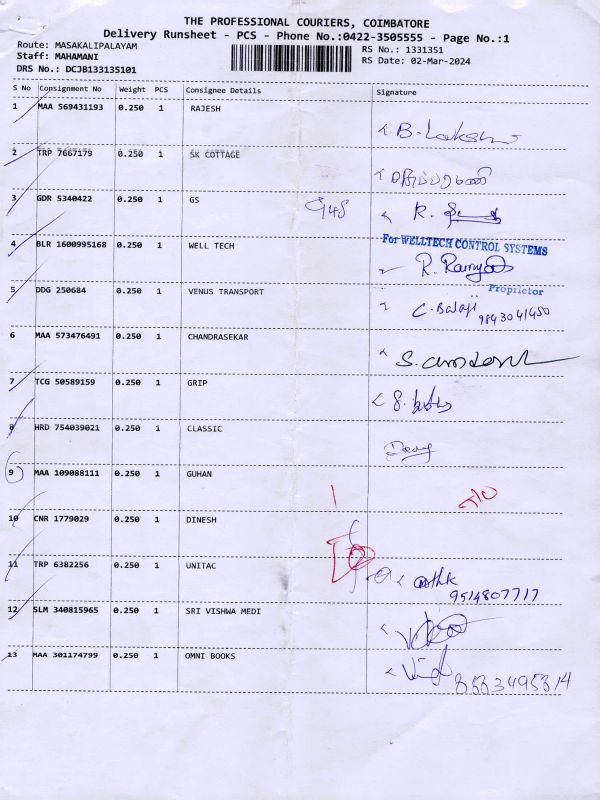 THE PROFESSIONAL COURIERS, COIMBATORE
Delivery Runsheet - PCS - Phone No.:0422-3505555 - Page No.:1
Route: MASAKALIPALAYAM
RS No.: 1331351
Staff: MAHAMANI
RS Date: 02-Mar-2024
DRS No.: DCJB133135101
S No Consignment No Weight PCS Consignee Details Signature
1 MAA 569431193 0.250 1 RAJESH
2 TRP 7667179 0.250 1 SK COTTAGE
3 GDR 5340422 0.250 1 GS
For WELLTECH CONTROL SYSTEMS
4 BLR 1600995168 0.250 1 WELL TECH
R. Ramya
Proprietor
5 DDG 250684 0.250 1 VENUS TRANSPORT
C. Balaji
9843041450
6 MAA 573476491 0.250 1 CHANDRASEKAR
7 TCG 50589159 0.250 1 GRIP
8 HRD 754039021 0.250 1 CLASSIC
9 MAA 109088111 0.250 1 GUHAN
10 CNR 1779029 0.250 1 DINESH
11 TRP 6382256 0.250 1 UNITAC
9514807717
12 SLM 340815965 0.250 1 SRI VISHWA MEDI
13 MAA 301174799 0.250 1 OMNI BOOKS